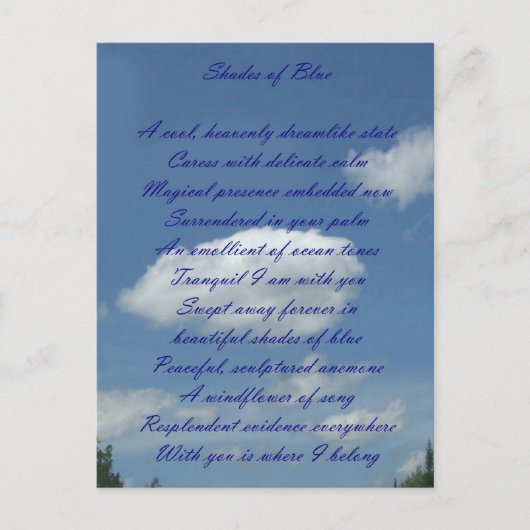 Shades of Blue
A cool, heavenly dreamlike state
Caress with delicate calm
Magical presence embedded now
Surrendered in your palm
An emollient of ocean tones
Tranquil I am with you
Swept away forever in
beautiful shades of blue
Peaceful, sculptured anemone
A windflower of song
Resplendent evidence everywhere
With you is where I belong